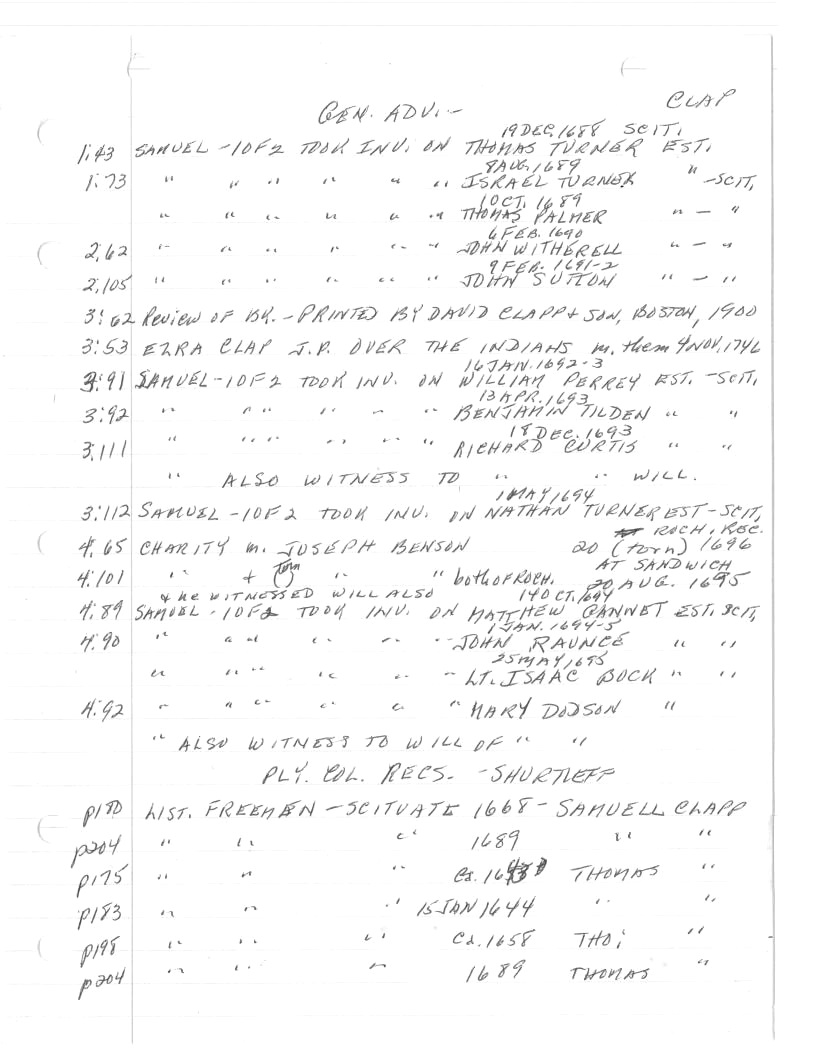 CLAP
GEN. ADV. -
19 DEC. 1688 SCIT.
1:43 SAMUEL - 1 OF 2 TOOK INV. ON THOMAS TURNER EST.
8 AUG. 1689
1:73 " " " " " " ISRAEL TURNER " - SCIT.
1 OCT. 1689
" " " " " " THOMAS PALMER " - "
6 FEB. 1690
2:62 " " " " " " JOHN WITHERELL " - "
9 FEB. 1691-2
2:105 " " " " " " JOHN SUTTON " - "
3:62 Review OF BK. - PRINTED BY DAVID CLAPP & SON, BOSTON, 1900
3:53 EZRA CLAP J.P. OVER THE INDIANS m. them 4 NOV. 1746
16 JAN. 1692-3
3:91 SAMUEL - 1 OF 2 TOOK INV. ON WILLIAM PERREY EST. - SCIT.
13 APR. 1693
3:92 " " " " " " BENJAMIN TILDEN " "
18 DEC. 1693
3:111 " " " " " " RICHARD CURTIS " "
" ALSO WITNESS TO " " WILL.
1 MAY 1694
3:112 SAMUEL - 1 OF 2 TOOK INV. ON NATHAN TURNER EST - SCIT.
ROCH. REC.
4:65 CHARITY m. JOSEPH BENSON 20 (torn) 1696
AT SANDWICH
4:101 " + (Torn) " " both of ROCH. 20 AUG. 1695
& he WITNESSED WILL ALSO 14 OCT. 1694
4:89 SAMUEL - 1 OF 2 TOOK INV. ON MATTHEW GANNET EST. SCIT.
1 JAN. 1694-5
4:90 " " " " " " JOHN RAUNCE " "
25 MAY 1695
" " " " " " LT. ISAAC BUCK " "
4:92 " " " " " " MARY DODSON "
" ALSO WITNESS TO WILL OF " "
PLY. COL. RECS. - SHURTLEFF
p180 LIST. FREEMEN - SCITUATE 1668 - SAMUELL CLAPP
p204 " " " 1689 " "
p175 " " " Ca. THOMAS "
p183 " " " 15 JAN 1644 " "
p198 " " " Ca. 1658 THO: "
p204 " " " 1689 THOMAS "